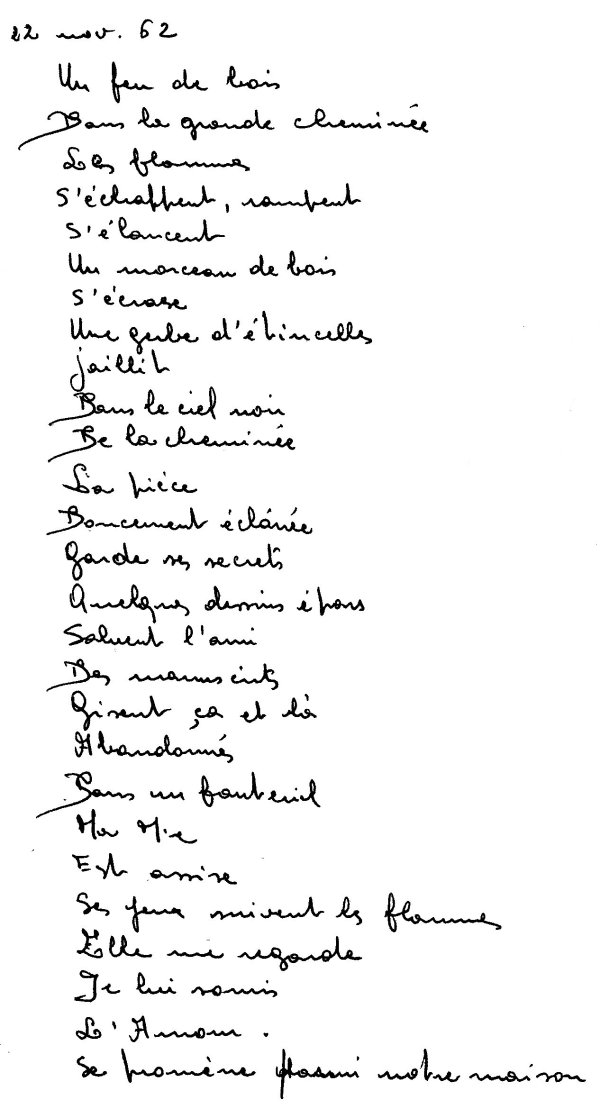 22 nov. 62
Un feu de bois
Dans la grande cheminée
Les flammes
S'échappent, rampent
S'élancent
Un morceau de bois
S'écrase
Une gerbe d'étincelles
jaillit
Dans le ciel noir
De la cheminée
La pièce
Doucement éclairée
Garde ses secrets
Quelques dessins épars
Saluent l'ami
Des manuscrits
Gisent ça et là
Abandonnés
Dans un fauteuil
Ma Mie
Est assise
Ses yeux suivent les flammes
Elle me regarde
Je lui souris
L'Amour.
Se promène parmi notre maison